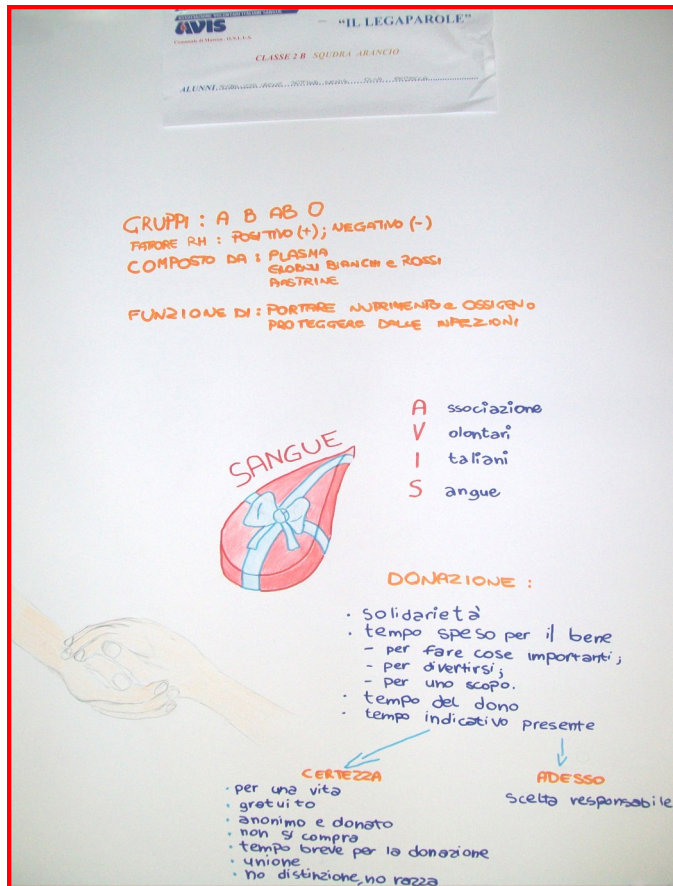 AVIS
– “IL LEGAPAROLE”
CLASSE 2 B SQUDRA ARANCIO
ALUNNI
GRUPPI : A B AB O
FATTORE RH : POSITIVO (+) ; NEGATIVO (-)
COMPOSTO DA : PLASMA
GLOBULI BIANCHI e ROSSI
PIASTRINE
FUNZIONE DI : PORTARE NUTRIMENTO e OSSIGENO
PROTEGGERE DALLE INFEZIONI
SANGUE
A ssociazione
V olontari
I taliani
S angue
DONAZIONE :
· solidarietà
· tempo speso per il bene
- per fare cose importanti;
- per divertirsi;
- per uno scopo.
· tempo del dono
· tempo indicativo presente
CERTEZZA
· per una vita
· gratuito
· anonimo e donato
· non si compra
· tempo breve per la donazione
· unione
· no distinzione, no razza
ADESSO
scelta responsabile